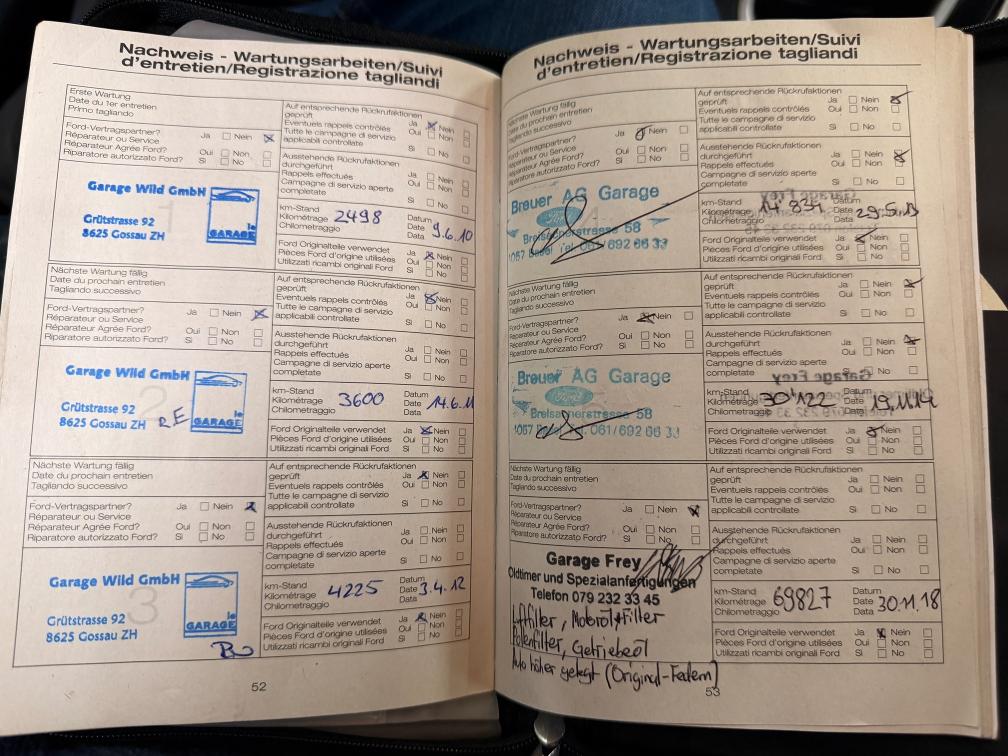 Nachweis - Wartungsarbeiten/Suivi
d'entretien/Registrazione tagliandi
Erste Wartung
Date du 1er entretien
Primo tagliando
Ford-Vertragspartner? Ja Nein
Réparateur ou Service
Réparateur Agrée Ford? Oui Non
Riparatore autorizzato Ford? Si No
Garage Wild GmbH
Grütstrasse 92
8625 Gossau ZH
le
GARAGE
Auf entsprechende Rückrufaktionen
geprüft Ja Nein
Eventuels rappels contrôlés Oui Non
Tutte le campagne di servizio
applicabili controllate Si No
Ausstehende Rückrufaktionen
durchgeführt Ja Nein
Rappels effectués Oui Non
Campagne di servizio aperte
completate Si No
km-Stand Datum
Kilométrage 2498 Date 9.6.10
Chilometraggio Data
Ford Originalteile verwendet Ja Nein
Pièces Ford d'origine utilisées Oui Non
Utilizzati ricambi originali Ford Si No
Nächste Wartung fällig
Date du prochain entretien
Tagliando successivo
Ford-Vertragspartner? Ja Nein
Réparateur ou Service
Réparateur Agrée Ford? Oui Non
Riparatore autorizzato Ford? Si No
Garage Wild GmbH
Grütstrasse 92
8625 Gossau ZH RE
le
GARAGE
Auf entsprechende Rückrufaktionen
geprüft Ja Nein
Eventuels rappels contrôlés Oui Non
Tutte le campagne di servizio
applicabili controllate Si No
Ausstehende Rückrufaktionen
durchgeführt Ja Nein
Rappels effectués Oui Non
Campagne di servizio aperte
completate Si No
km-Stand Datum
Kilométrage 3600 Date 14.6.11
Chilometraggio Data
Ford Originalteile verwendet Ja Nein
Pièces Ford d'origine utilisées Oui Non
Utilizzati ricambi originali Ford Si No
Nächste Wartung fällig
Date du prochain entretien
Tagliando successivo
Ford-Vertragspartner? Ja Nein
Réparateur ou Service
Réparateur Agrée Ford? Oui Non
Riparatore autorizzato Ford? Si No
3
Garage Wild GmbH
Grütstrasse 92
8625 Gossau ZH
le
GARAGE
Auf entsprechende Rückrufaktionen
geprüft Ja Nein
Eventuels rappels contrôlés Oui Non
Tutte le campagne di servizio
applicabili controllate Si No
Ausstehende Rückrufaktionen
durchgeführt Ja Nein
Rappels effectués Oui Non
Campagne di servizio aperte
completate Si No
km-Stand Datum
Kilométrage 4225 Date 3.4.12
Chilometraggio Data
Ford Originalteile verwendet Ja Nein
Pièces Ford d'origine utilisées Oui Non
Utilizzati ricambi originali Ford Si No
52
Nachweis - Wartungsarbeiten/Suivi
d'entretien/Registrazione tagliandi
Nächste Wartung fällig
Date du prochain entretien
Tagliando successivo
Ford-Vertragspartner? Ja Nein
Réparateur ou Service
Réparateur Agrée Ford? Oui Non
Riparatore autorizzato Ford? Si No
Breuer AG Garage
Ford
Breisacherstrasse 58
Tel. 061/692 66 33
Auf entsprechende Rückrufaktionen
geprüft Ja Nein
Eventuels rappels contrôlés Oui Non
Tutte le campagne di servizio
applicabili controllate Si No
Ausstehende Rückrufaktionen
durchgeführt Ja Nein
Rappels effectués Oui Non
Campagne di servizio aperte
completate Si No
km-Stand Datum
Kilométrage Date 29.5.13
Chilometraggio Data
Ford Originalteile verwendet Ja Nein
Pièces Ford d'origine utilisées Oui Non
Utilizzati ricambi originali Ford Si No
Nächste Wartung fällig
Date du prochain entretien
Tagliando successivo
Ford-Vertragspartner? Ja Nein
Réparateur ou Service
Réparateur Agrée Ford? Oui Non
Riparatore autorizzato Ford? Si No
Breuer AG Garage
Ford
Breisacherstrasse 58
Tel. 061/692 66 33
Auf entsprechende Rückrufaktionen
geprüft Ja Nein
Eventuels rappels contrôlés Oui Non
Tutte le campagne di servizio
applicabili controllate Si No
Ausstehende Rückrufaktionen
durchgeführt Ja Nein
Rappels effectués Oui Non
Campagne di servizio aperte
completate Si No
km-Stand Datum
Kilométrage 30'122 Date 19.11.14
Chilometraggio Data
Ford Originalteile verwendet Ja Nein
Pièces Ford d'origine utilisées Oui Non
Utilizzati ricambi originali Ford Si No
Nächste Wartung fällig
Date du prochain entretien
Tagliando successivo
Ford-Vertragspartner? Ja Nein
Réparateur ou Service
Réparateur Agrée Ford? Oui Non
Riparatore autorizzato Ford? Si No
Garage Frey
Oldtimer und Spezialanfertigungen
Telefon 079 232 33 45
Luftfilter, Motoröl+Filter
Pollenfilter, Getriebeöl
Auto höher gelegt (Original-Federn)
Auf entsprechende Rückrufaktionen
geprüft Ja Nein
Eventuels rappels contrôlés Oui Non
Tutte le campagne di servizio
applicabili controllate Si No
Ausstehende Rückrufaktionen
durchgeführt Ja Nein
Rappels effectués Oui Non
Campagne di servizio aperte
completate Si No
km-Stand Datum
Kilométrage 69827 Date 30.11.18
Chilometraggio Data
Ford Originalteile verwendet Ja Nein
Pièces Ford d'origine utilisées Oui Non
Utilizzati ricambi originali Ford Si No
53